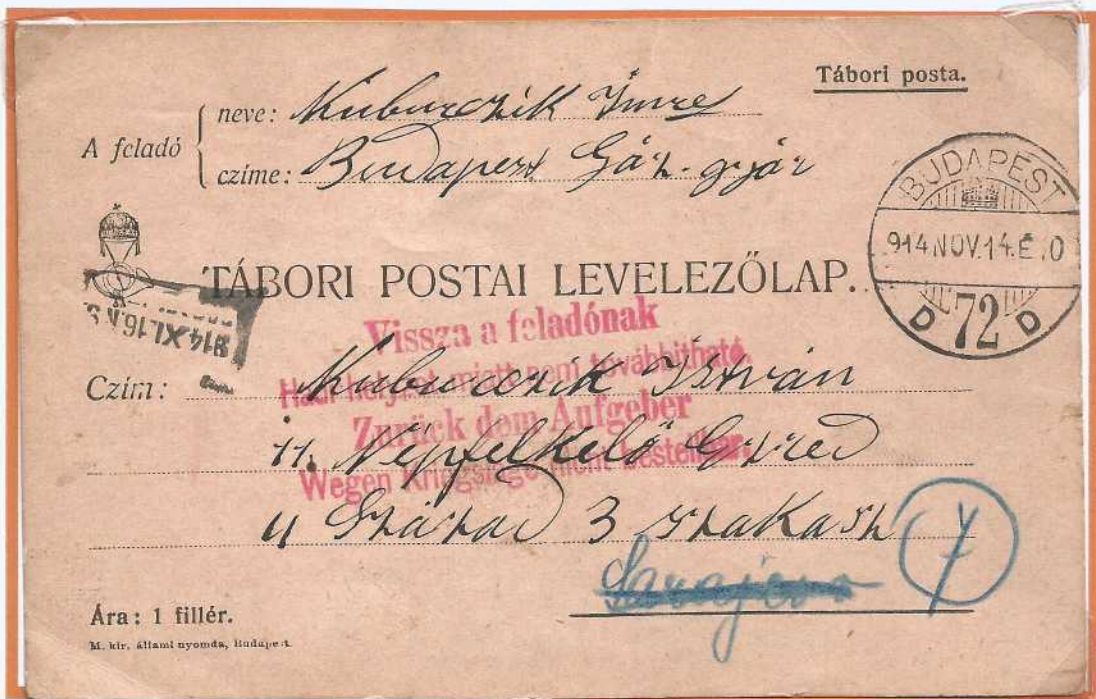 Tábori posta.
A feladó
neve: Kuburczik Imre
czíme: Budapest Gáz-gyár
BUDAPEST
914 NOV. 14. E 10
D 72 D
TÁBORI POSTAI LEVELEZŐLAP.
914 XI. 16. N
Vissza a feladónak
Hadi helyzet miatt nem továbbítható.
Zurück dem Aufgeber
Wegen Kriegslage nicht bestellbar.
Czím: Kuburczik István
11. Népfelkelő Ezred
4 Század 3 szakasz
Sarajevo
Ára: 1 fillér.
M. kir. állami nyomda, Budapest.